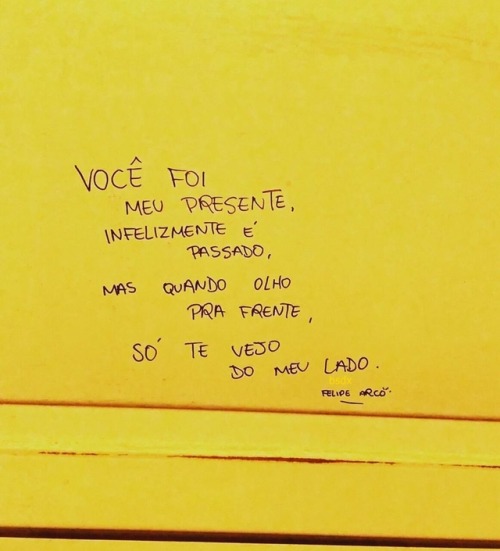 VOCÊ FOI
MEU PRESENTE,
INFELIZMENTE É
PASSADO,
MAS QUANDO OLHO
PRA FRENTE,
SÓ TE VEJO
DO MEU LADO.
FELIPE ARCO